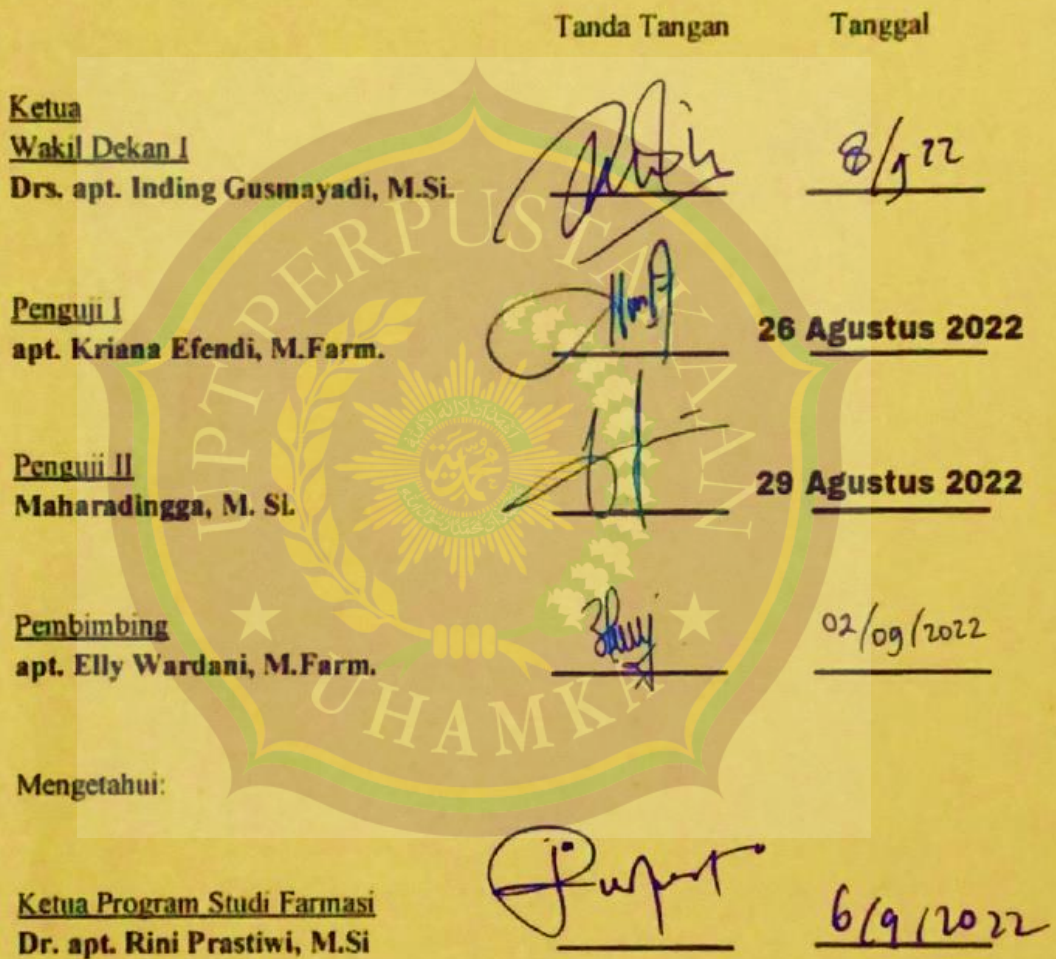 Tanda Tangan Tanggal
Ketua
Wakil Dekan I
Drs. apt. Inding Gusmayadi, M.Si. 8/9 22
Penguji I
apt. Kriana Efendi, M.Farm. 26 Agustus 2022
Penguji II
Maharadingga, M. Si. 29 Agustus 2022
Pembimbing
apt. Elly Wardani, M.Farm. 02/09/2022
Mengetahui:
Ketua Program Studi Farmasi
Dr. apt. Rini Prastiwi, M.Si 6/9/2022
UPT PERPUSTAKAAN
UHAMKA